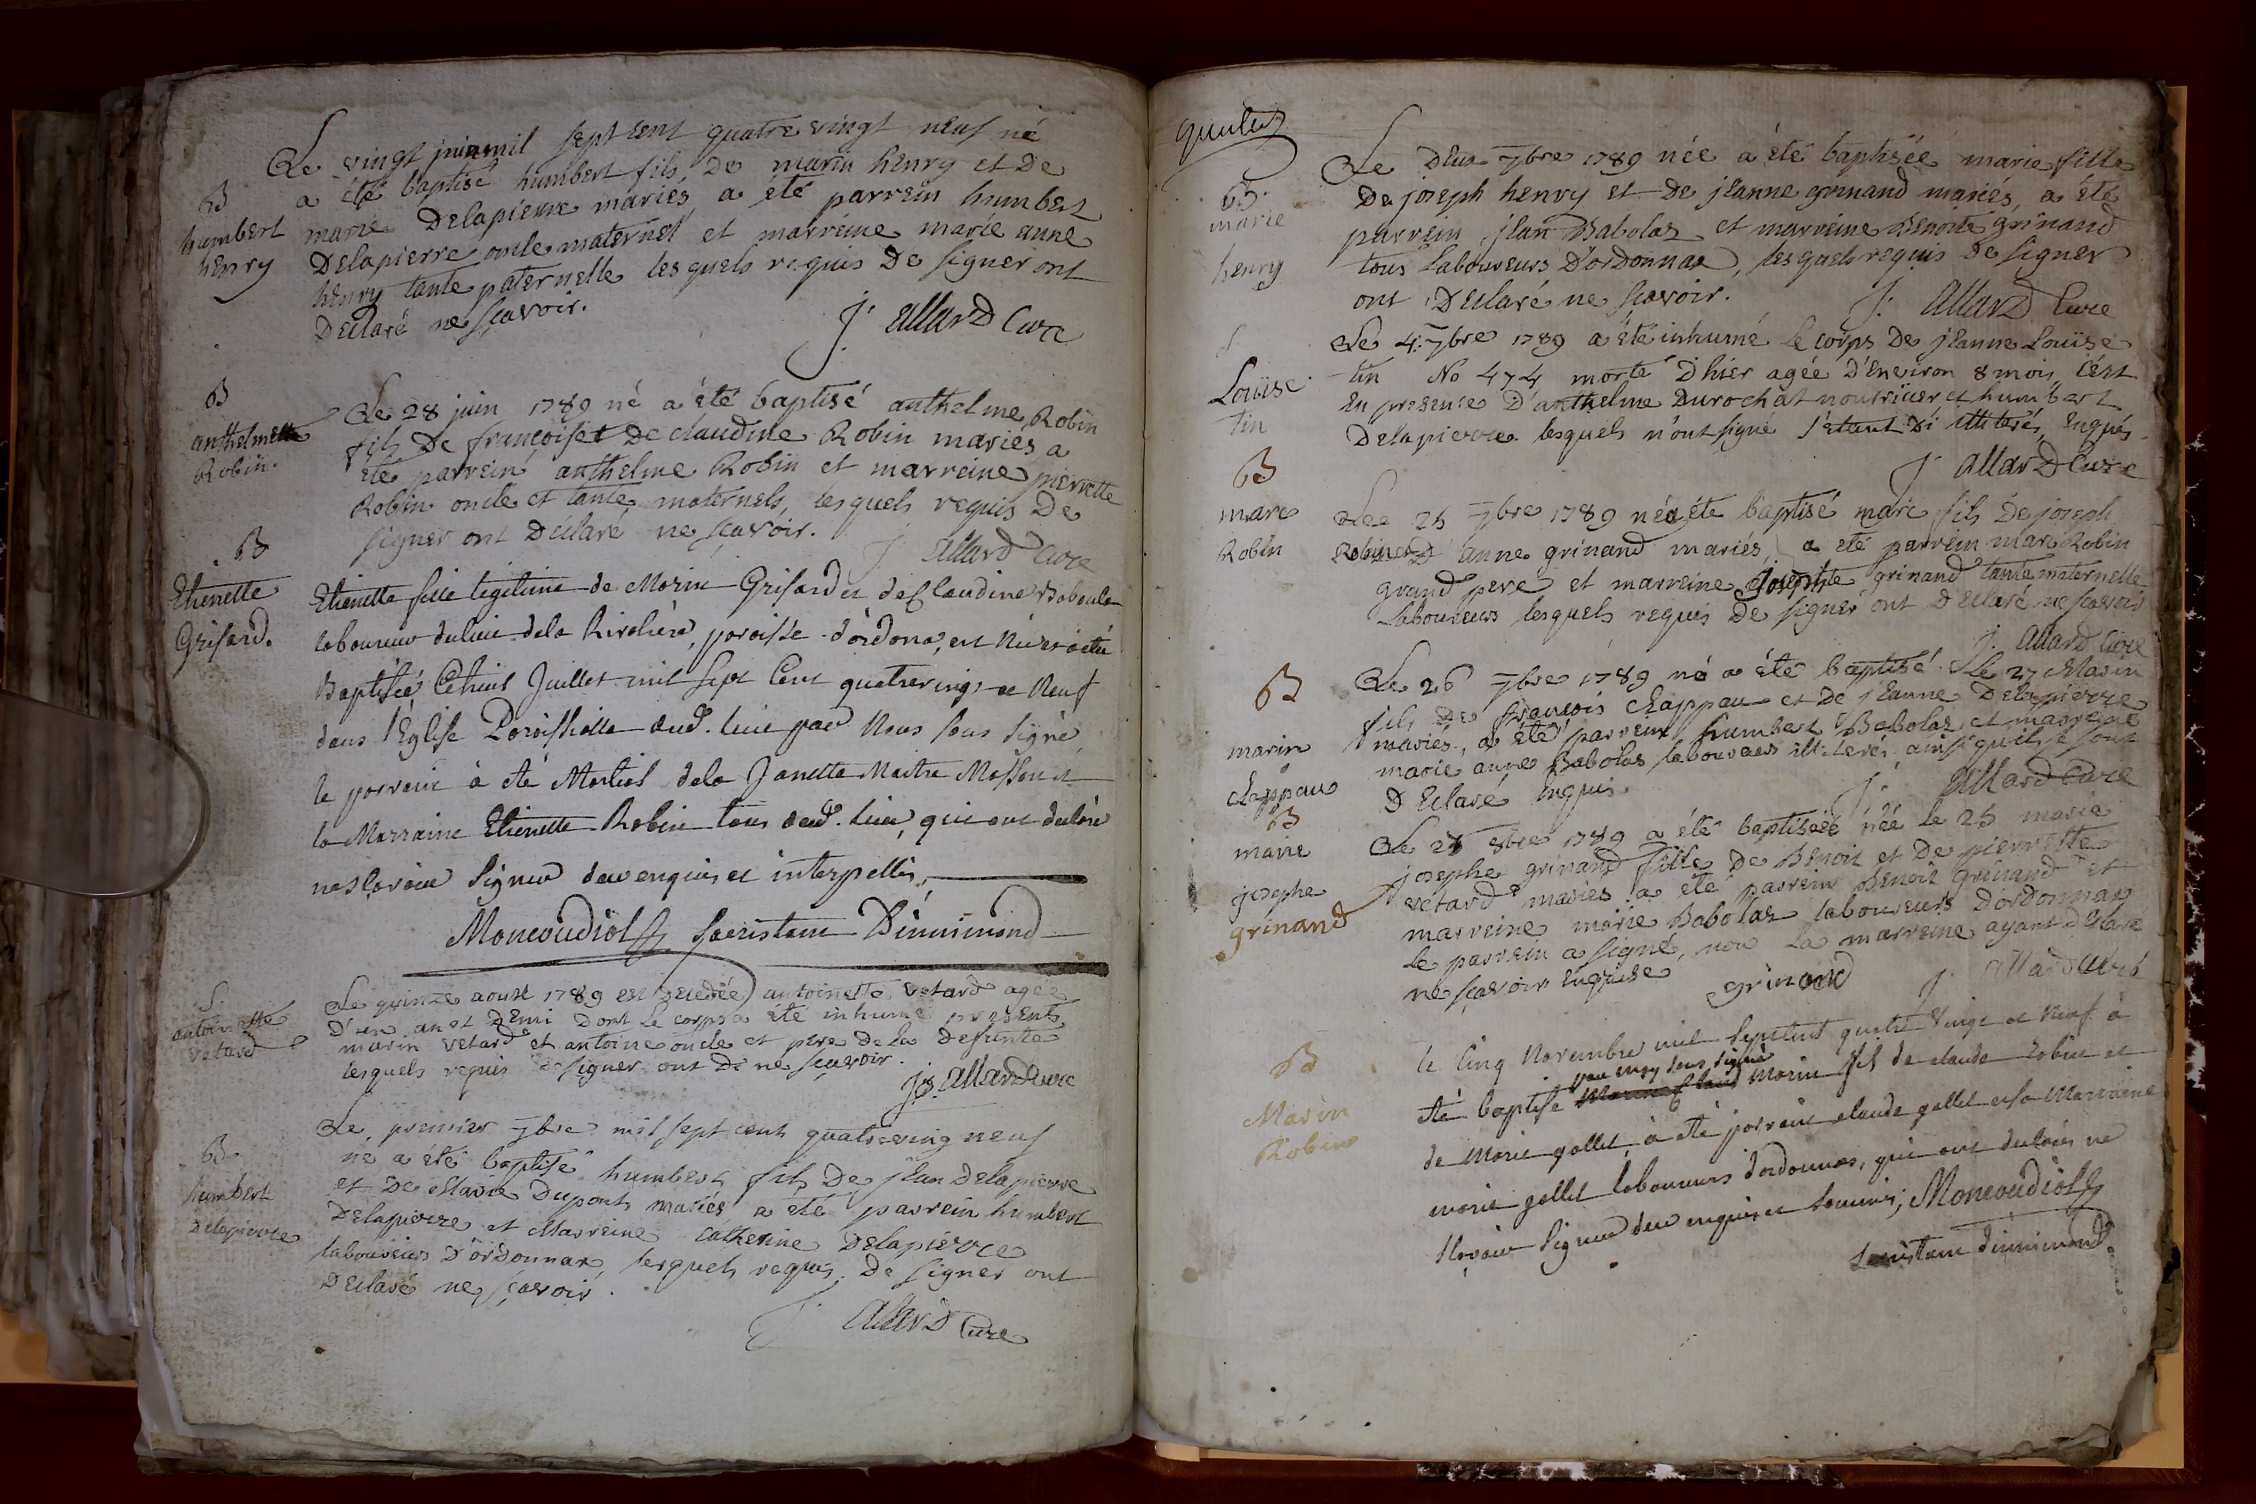 Le vingt juin mil sept cent quatre vingt neuf né
a été baptisé humbert fils de marin henry et de
marie Delapierre mariés a été parrein humbert
Delapierre oncle maternel et marreine marie anne
henry tante paternelle lesquels requis de signer ont
Declaré ne sçavoir.
J. allard Curé
B
humbert
henry
B
anthelmette
Robin.
Le 28 juin 1789 né a été baptisé anthelme Robin
fils De françois et De claudine Robin mariés a
été parrein anthelme Robin et marreine pierrette
Robin oncle et tante maternels, lesquels requis De
signer ont Declaré ne sçavoir.
J. allard Curé
B
Etienette
Grisard.
Etienette fille legitime de Morin Grisard et de Claudine Baboulas
laboureur du lieu dela Rivolière, paroisse d'ordona, est née et a été
Baptisée Cehuit Juillet mil Sept Cent quatrevingt et Neuf
dans l'Eglise Paroissialle dud. lieu par Nous sous signé
le parrain à été Martial dela Janette Maitre Masson et
la Marraine Etienette Robin tous dud. lieu, qui ont declaré
ne sçavoir signer deu enquis et interpellés,
Moncoudiol sacristain D'innimond
S.
antoinette
vetard
Le quinze aoust 1789 est decedée antoinette vetard agée
d'un an et Demi Dont le corps a été inhumé presents
marin vetard et antoine oncle et pere de La Defunte
lesquels requis de signer ont De ne sçavoir.
J. allard Curé
B
humbert
Delapierre
Le premier 7bre mil sept cent quatreving neuf
né a été baptisé humbert fils De jean Delapierre
et De Marie Duponts mariés a été parrein humbert
Delapierre et Marreine Catherine Delapierre
laboureurs D'ordonnax, lesquels requis De signer ont
Declaré ne sçavoir.
J. allard Curé
B.
marie
henry
Le Deux 7bre 1789 née a été baptisée marie fille
De joseph henry et De jeanne grinand mariés, a été
parrein jean Babolaz et marreine Benoite grinand
tous Laboureurs D'ordonnax, lesquels requis De signer
ont Declaré ne sçavoir.
J. allard Curé
Louise
tin
Le 4. 7bre 1789 a été inhumé le corps De jeanne Louïse
tin No 474 morte D'hier agée D'environ 8 mois, C'est
En presence D'anthelme Durochat nourricier et humbert
Delapierre lesquels n'ont signé s'etant Di illiterés, Enquis.
J. allard Curé
B
marc
Robin
Le 25 7bre 1789 né a été baptisé marc fils De joseph
Robin et D'anne grinand mariés, a été parrein marc Robin
grand pere et marreine josephte grinand tante maternelle
Laboureurs lesquels requis De signer ont Declaré ne sçavoir
J. allard Curé
B
marin
chappau
Le 26 7bre 1789 né a été baptisé Le 27 Marin
fils De françois Chappau et De jeanne Delapierre
mariés, a été parrein humbert Babolaz et marreine
marie anne Babolas laboureurs illiterés ainsi qu'ils se sont
Declaré Enquis.
J. allard Curé
B
marie
josephe
grinand
Le 25 8bre 1789 a été baptiseée née le 25 marie
josephe grinand fille De Benoit et De pierrette
vetard mariés a été parrein Benoit grinand et
marreine marie Babolaz laboureurs D'ordonnax
le parrein a signé, non la marreine ayant Declaré
ne sçavoir Enquise
grinand
J. allard curé
B
Marin
Robin
le Cinq Novembre mil septcent quatre vingt et Neuf à
par moy sous signé
été baptisé Marin fils de claude Robin et
de Marie gollet, à été parrain claude gollet et la Marraine
marie gollet laboureurs d'ordonnas, qui ont declarés ne
sçavoir signer deu enquis et sommés; Moncoudiol
sacristain d'innimond.